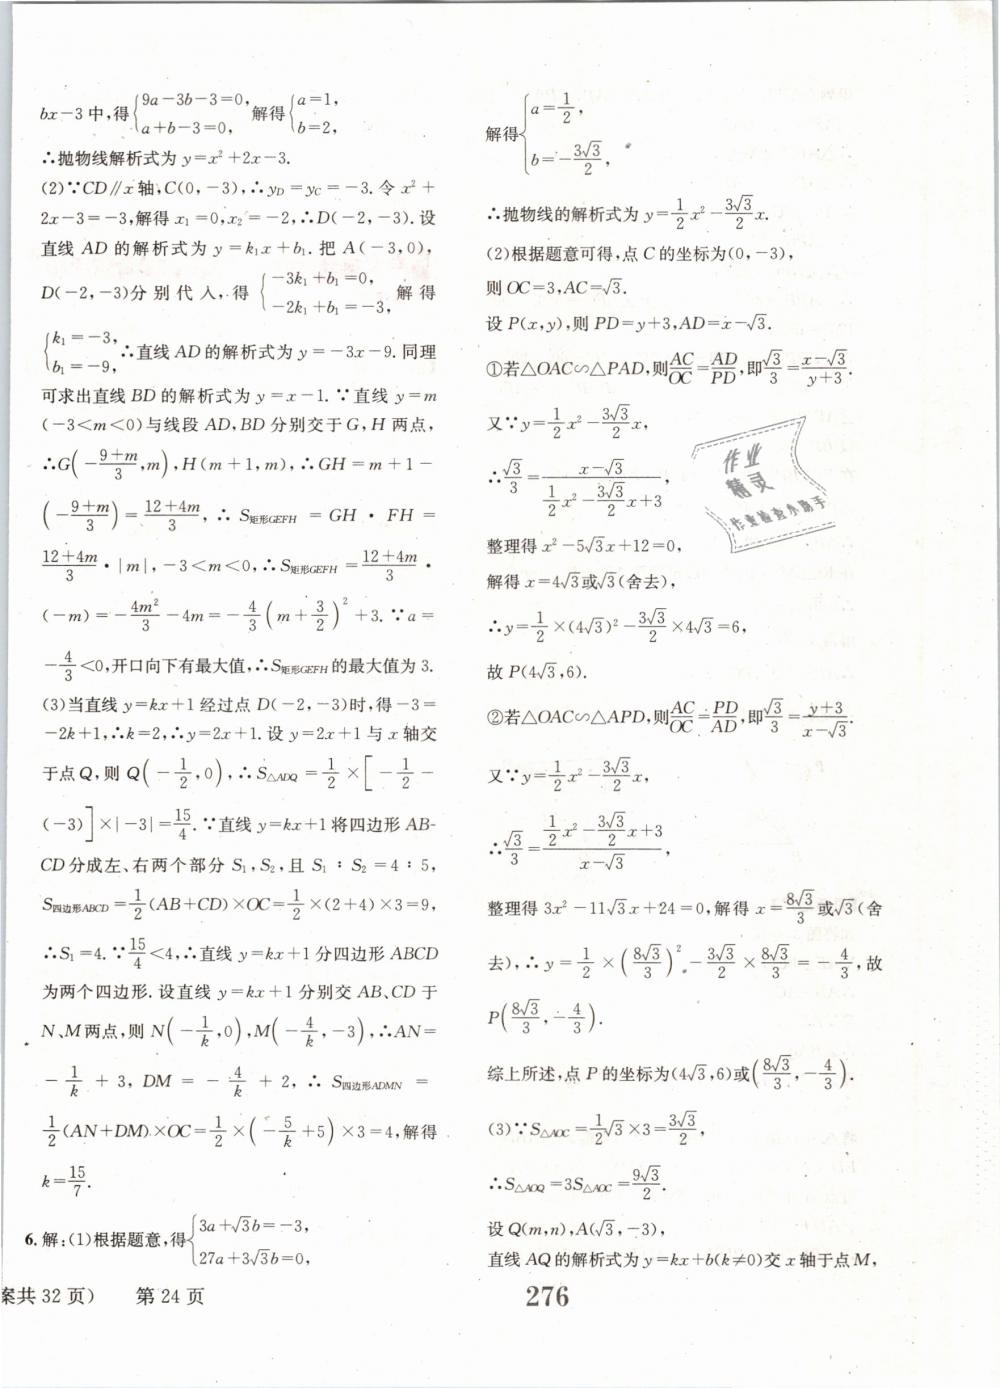 bx-3中,得{9a-3b-3=0, a+b-3=0, 解得{a=1, b=2,
∴抛物线解析式为 y=x²+2x-3.
(2)∵CD∥x轴,C(0,-3),∴y_D=y_C=-3.令 x²+
2x-3=-3,解得 x₁=0,x₂=-2,∴D(-2,-3).设
直线 AD 的解析式为 y=k₁x+b₁.把 A(-3,0),
D(-2,-3)分别代入,得{-3k₁+b₁=0, -2k₁+b₁=-3, 解得
{k₁=-3, b₁=-9, ∴直线 AD 的解析式为 y=-3x-9.同理
可求出直线 BD 的解析式为 y=x-1.∵直线 y=m
(-3<m<0)与线段 AD,BD 分别交于 G,H 两点,
∴G(-(9+m)/3,m),H(m+1,m),∴GH=m+1-
(-(9+m)/3)=(12+4m)/3,∴S矩形GEFH=GH·FH=
(12+4m)/3·|m|,-3<m<0,∴S矩形GEFH=(12+4m)/3·
(-m)=-4m²/3-4m=-4/3(m+3/2)²+3.∵a=
-4/3<0,开口向下有最大值,∴S矩形GEFH的最大值为 3.
(3)当直线 y=kx+1 经过点 D(-2,-3)时,得-3=
-2k+1,∴k=2,∴y=2x+1.设 y=2x+1 与 x 轴交
于点 Q,则 Q(-1/2,0),∴S△ADQ=1/2×[-1/2-
(-3)]×|-3|=15/4.∵直线 y=kx+1 将四边形 AB-
CD 分成左、右两个部分 S₁,S₂,且 S₁∶S₂=4∶5,
S四边形ABCD=1/2(AB+CD)×OC=1/2×(2+4)×3=9,
∴S₁=4.∵15/4<4,∴直线 y=kx+1 分四边形 ABCD
为两个四边形.设直线 y=kx+1 分别交 AB、CD 于
N、M 两点,则 N(-1/k,0),M(-4/k,-3),∴AN=
-1/k+3,DM=-4/k+2,∴S四边形ADMN=
1/2(AN+DM)×OC=1/2×(-5/k+5)×3=4,解得
k=15/7.
6.解:(1)根据题意,得{3a+√3b=-3, 27a+3√3b=0,
案共 32 页) 第 24 页
解得{a=1/2, b=-3√3/2,
∴抛物线的解析式为 y=1/2x²-3√3/2x.
(2)根据题意可得,点 C 的坐标为(0,-3),
则 OC=3,AC=√3.
设 P(x,y),则 PD=y+3,AD=x-√3.
①若△OAC∽△PAD,则AC/OC=AD/PD,即√3/3=(x-√3)/(y+3).
又∵y=1/2x²-3√3/2x,
∴√3/3=(x-√3)/(1/2x²-3√3/2x+3),
整理得 x²-5√3x+12=0,
解得 x=4√3或√3(舍去),
∴y=1/2×(4√3)²-3√3/2×4√3=6,
故 P(4√3,6).
②若△OAC∽△APD,则AC/OC=PD/AD,即√3/3=(y+3)/(x-√3).
又∵y=1/2x²-3√3/2x,
∴√3/3=(1/2x²-3√3/2x+3)/(x-√3),
整理得 3x²-11√3x+24=0,解得 x=8√3/3或√3(舍
去),∴y=1/2×(8√3/3)²-3√3/2×8√3/3=-4/3,故
P(8√3/3,-4/3).
综上所述,点 P 的坐标为(4√3,6)或(8√3/3,-4/3).
(3)∵S△AOC=1/2√3×3=3√3/2,
∴S△AOQ=3S△AOC=9√3/2.
设 Q(m,n),A(√3,-3),
直线 AQ 的解析式为 y=kx+b(k≠0)交 x 轴于点 M,
276
作业
精灵
作业检查小助手